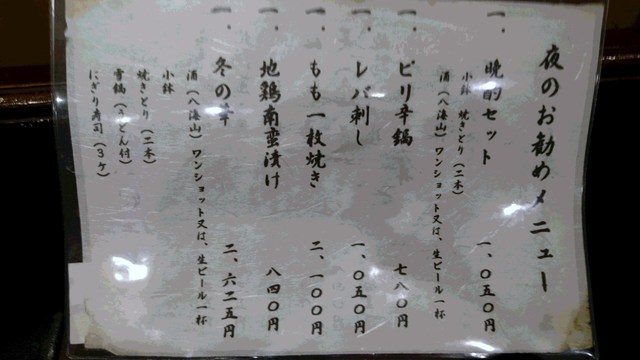 夜のお勧めメニュー
一、晩酌セット 一、〇五〇円
小鉢 焼きどり(二本)
酒(八海山)ワンショット又は、生ビール一杯
一、ピリ辛鍋 七八〇円
一、レバ刺し 一、〇五〇円
一、もも一枚焼き 二、一〇〇円
一、地鶏南蛮漬け 八四〇円
一、冬の 二、六二五円
酒(八海山)ワンショット又は、生ビール一杯
小鉢
焼きどり(二本)
雪鍋(うどん付)
にぎり寿司(3ヶ)